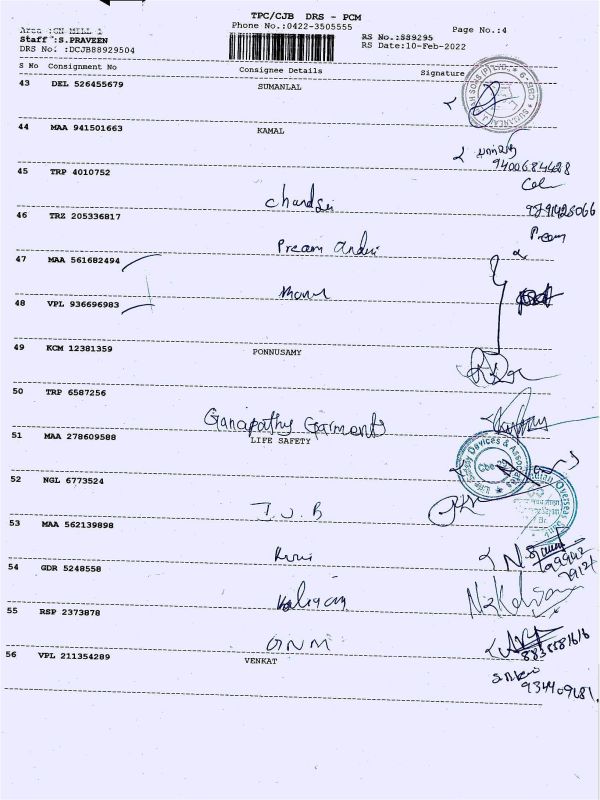 TPC/CJB DRS - PCM
Area :GN MILL 1 Phone No.:0422-3505555 Page No.:4
Staff :S.PRAVEEN RS No.:889295
DRS No: :DCJB88929504 RS Date:10-Feb-2022
S No Consignment No Consignee Details Signature
43 DEL 526455679 SUMANLAL
44 MAA 941501663 KAMAL
9400684428
45 TRP 4010752
9791425066
46 TRZ 205336817
Pream
47 MAA 561682494
48 VPL 936696983
49 KCM 12381359 PONNUSAMY
50 TRP 6587256
Ganapathy Garments
51 MAA 278609588 LIFE SAFETY
Life Safety Devices & Associates
52 NGL 6773524
I O B
Indian Overseas Bank
53 MAA 562139898
54 GDR 5248558
Kalyan
55 RSP 2373878
GNM
56 VPL 211354289 VENKAT